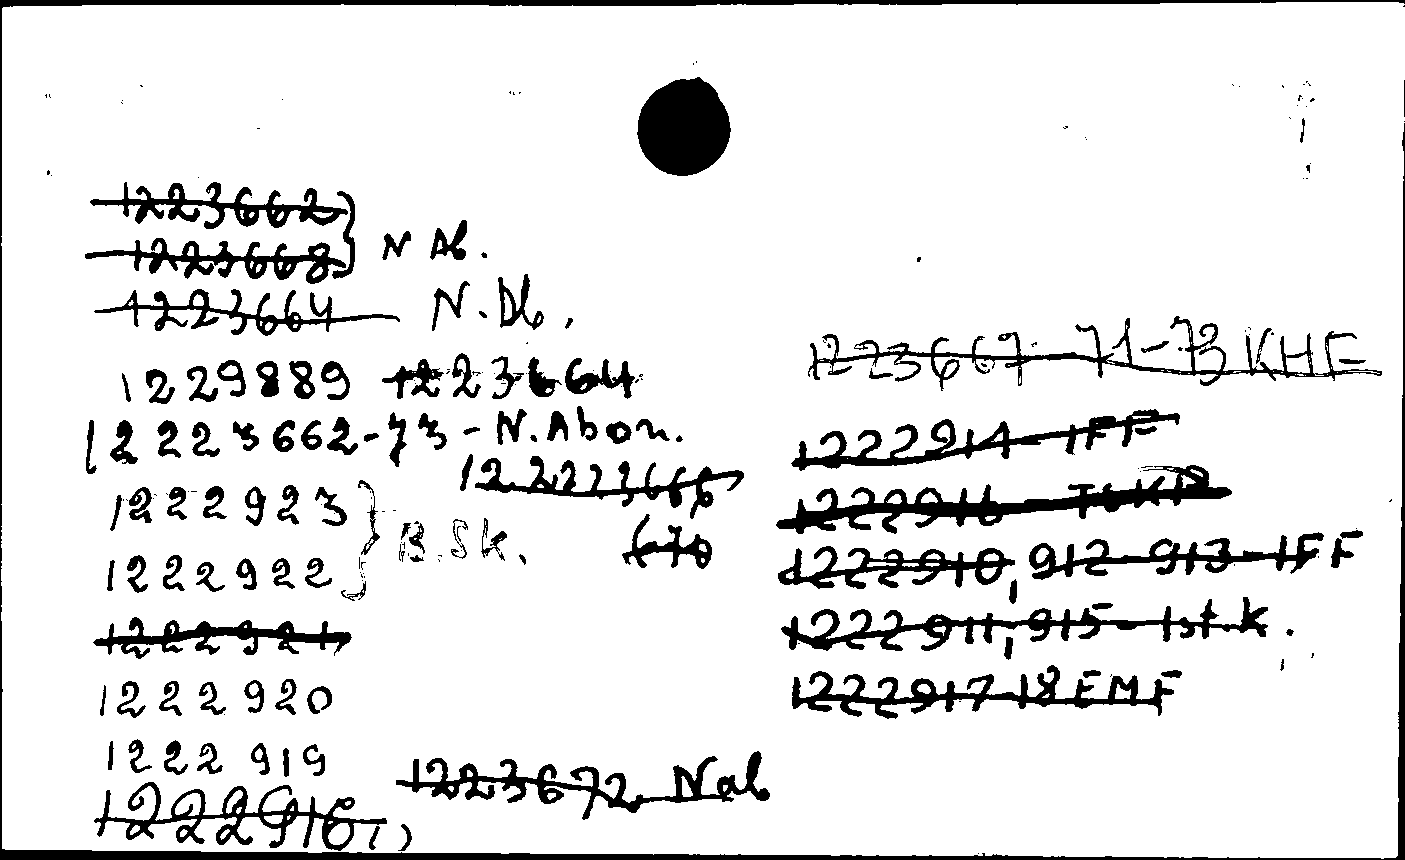 1223662 } N Ab.
1223668
1223664 N.Db.
1229889 1223664
12223662-73-N.Abon.
12.2223666
670
1222923 } B.Sk.
1222922
1222921
1222920
1222 919
1222916
1223672 Nab
1223667-71-73 KHF
1222914-IFF
1222916-
1222910, 912-913-IFF
1222911, 915-Ist.k.
1222917-18 EMF